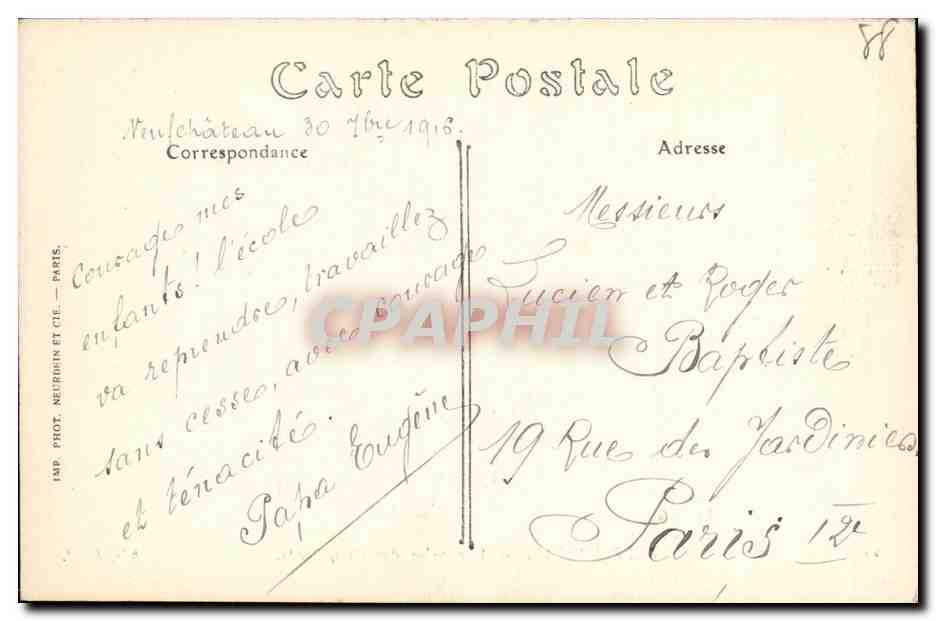 88
Carte Postale
Neufchâteau 30 7bre 1916.
Correspondance
Adresse
Courage mes
enfants! l'école
va reprendre, travaillez
sans cesse, avec courage
et ténacité.
Papa Eugène
Messieurs
Lucien et Roger
Baptiste
19 Rue des Jardiniers
Paris 12e
IMP. PHOT. NEURDEIN ET CIE. — PARIS.
CPAPHIL